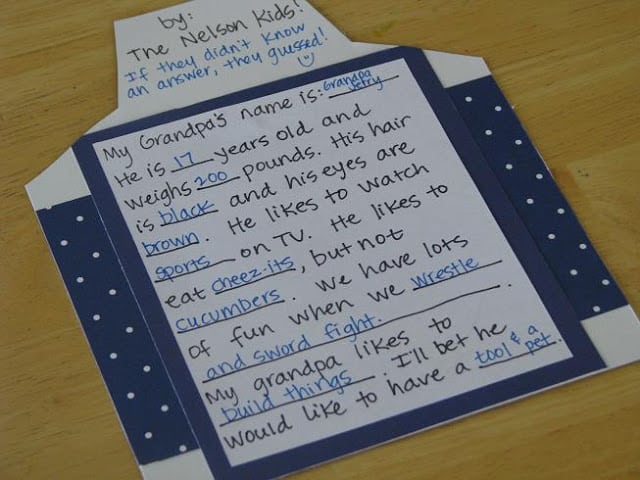 by:
The Nelson Kids!
If they didn't know
an answer, they guessed!
My Grandpa's name is: Grandpa Jerry
He is 17 years old and
weighs 200 pounds. His hair
is black and his eyes are
brown. He likes to watch
sports on TV. He likes to
eat cheez-its, but not
cucumbers. We have lots
of fun when we wrestle
and sword fight.
My grandpa likes to
build things. I'll bet he
would like to have a tool & a pet.